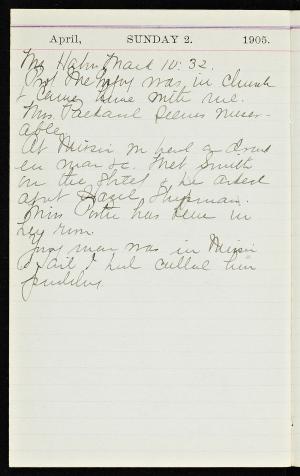 April, SUNDAY 2. 1905.
Mr Hahn Mark 10:32.
Prof was in church
& came home with me.
Mrs. Packard seems miser-
able.
At Mission we had a drunk-
en man &c. Met Smith
on the street & he asked
abt Hazel Shipman.
Miss Porter has been in
her room.
man was in Mission
& said I had called him